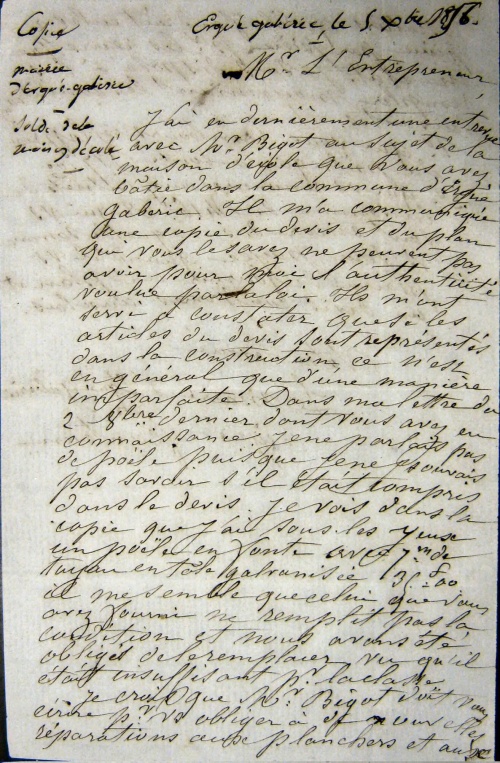 Copie
Ergué gabéric, le 5 Xbre 1856.
mairie
d'ergué-gabéric
Mr. L'Entrepreneur
solde de la
maison d'école
J'ai eu dernièrement une entrevue
avec Mr. Bigot au sujet de la
maison d'école que vous avez
bâtie dans la commune d'Ergué
gabéric. Il m'a communiqué
une copie du devis et du plan
qui vous le savez ne peuvent pas
avoir pour moi l'authenticité
voulue par la loi. Ils m'ont
servi à constater que si les
articles du devis sont représentés
dans la construction ce n'est
en général que d'une manière
imparfaite. Dans ma lettre du
2 8bre dernier dont vous avez eu
connaissance je ne parlais pas
de poële puisque je ne pouvais
pas savoir s'il était compris
dans le devis. je vois dans la
copie que j'ai sous les yeux
un poële en fonte avec 7m de
tuyau en tôle galvanisée
il me semble que celui que vous
avez fourni ne remplit pas la
condition et nous avons été
obligés de le remplacer vu qu'il
était insuffisant pr. la classe
je crois que Mr. Bigot doit vous
écrire pr. vs obliger à de nouvelles
réparations aux planchers et aux